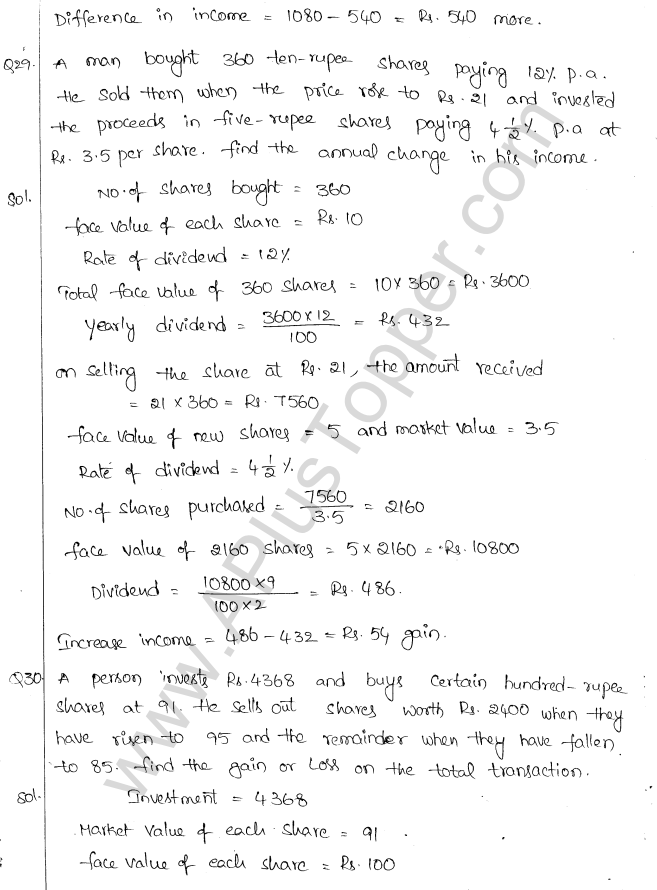 Difference in income = 1080 - 540 = Rs. 540 more.
Q29. A man bought 360 ten-rupee shares paying 12% p.a.
He sold them when the price rose to Rs. 21 and invested
the proceeds in five-rupee shares paying 4 1/2 % p.a at
Rs. 3.5 per share. find the annual change in his income.
Sol. No. of shares bought = 360
face value of each share = Rs. 10
Rate of dividend = 12%
Total face value of 360 shares = 10 x 360 = Rs. 3600
Yearly dividend = 3600 x 12 / 100 = Rs. 432
on selling the share at Rs. 21, the amount received
= 21 x 360 = Rs. 7560
face value of new shares = 5 and market value = 3.5
Rate of dividend = 4 1/2 %.
No. of shares purchased = 7560 / 3.5 = 2160
face value of 2160 shares = 5 x 2160 = Rs. 10800
Dividend = 10800 x 9 / 100 x 2 = Rs. 486.
Increase income = 486 - 432 = Rs. 54 gain.
Q30. A person invests Rs. 4368 and buys certain hundred-rupee
shares at 91. He sells out shares worth Rs. 2400 when they
have risen to 95 and the remainder when they have fallen
to 85. find the gain or Loss on the total transaction.
Sol. Investment = 4368
Market value of each share = 91
face value of each share = Rs. 100
www.APlusTopper.com